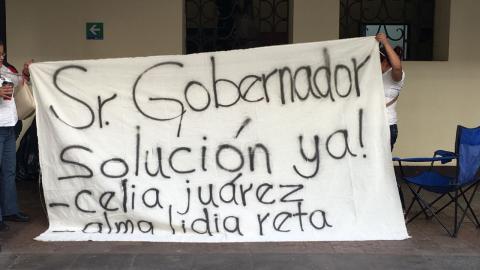 Sr. Gobernador
solución ya!
-celia juárez
-alma lidia reta